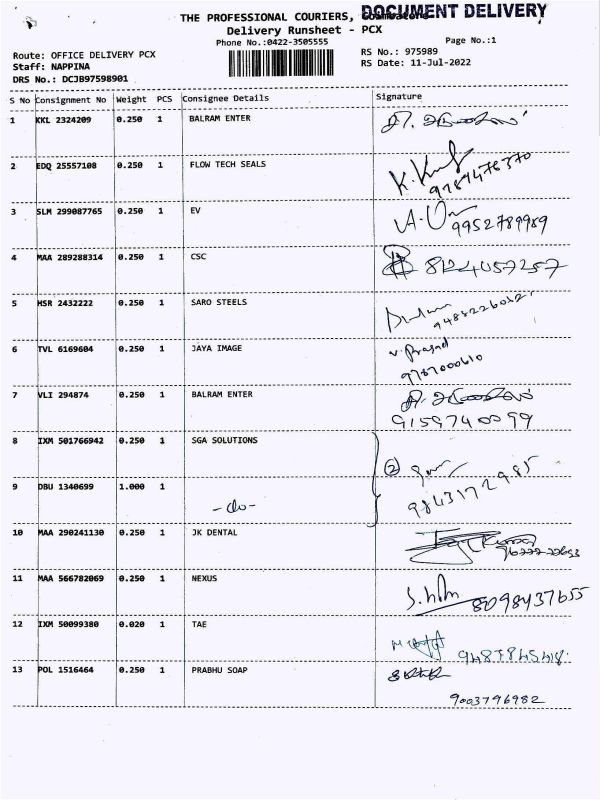 THE PROFESSIONAL COURIERS, Coimbatore
DOCUMENT DELIVERY
Delivery Runsheet - PCX
Phone No.:0422-3505555
Page No.:1
Route: OFFICE DELIVERY PCX
RS No.: 975989
Staff: NAPPINA
RS Date: 11-Jul-2022
DRS No.: DCJB97598901
S No Consignment No Weight PCS Consignee Details Signature
1 KKL 2324209 0.250 1 BALRAM ENTER
2 EDQ 25557108 0.250 1 FLOW TECH SEALS
9787476370
3 SLM 299087765 0.250 1 EV
9952789989
4 MAA 289288314 0.250 1 CSC 8124057257
5 HSR 2432222 0.250 1 SARO STEELS
6 TVL 6169604 0.250 1 JAYA IMAGE V. Prasad
9787000610
7 VLI 294874 0.250 1 BALRAM ENTER
9159740099
8 IXM 501766942 0.250 1 SGA SOLUTIONS
2
9 DBU 1340699 1.000 1 -do- 9843172985
10 MAA 290241130 0.250 1 JK DENTAL
11 MAA 566782069 0.250 1 NEXUS
8098437655
12 IXM 50099380 0.020 1 TAE
9487845418
13 POL 1516464 0.250 1 PRABHU SOAP
9003796982